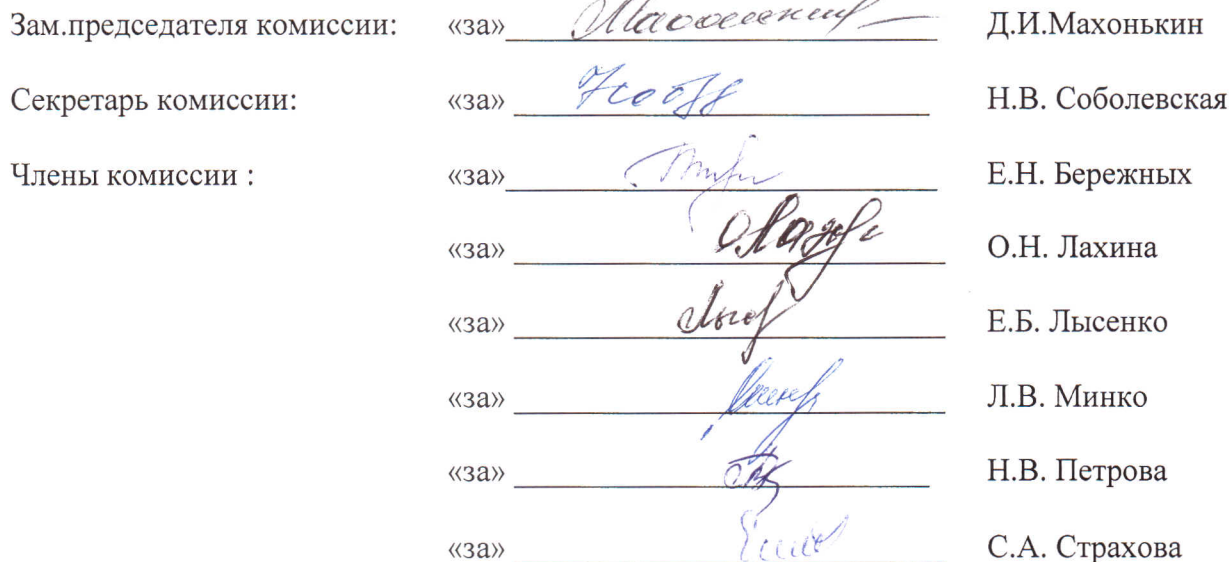 Зам.председателя комиссии: «за» Д.И.Махонькин
Секретарь комиссии: «за» Н.В. Соболевская
Члены комиссии : «за» Е.Н. Бережных
«за» О.Н. Лахина
«за» Е.Б. Лысенко
«за» Л.В. Минко
«за» Н.В. Петрова
«за» С.А. Страхова